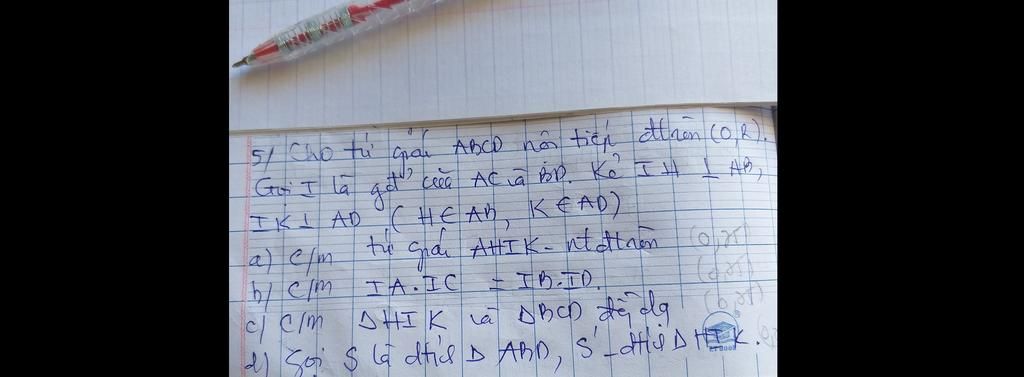 5/ Cho tứ giác ABCD nội tiếp đtròn (O,R).
Gọi I là gđ của AC và BD. Kẻ IH ⊥ AB,
IK ⊥ AD (H ∈ AB, K ∈ AD)
a) C/m tứ giác AHIK nt đtròn (0,25)
b) C/m IA.IC = IB.ID. (0,25)
c) C/m ΔHIK và ΔBCD đồng dg (0,25)
d) Gọi S là dtích Δ ABD, S' dtích Δ HIK.